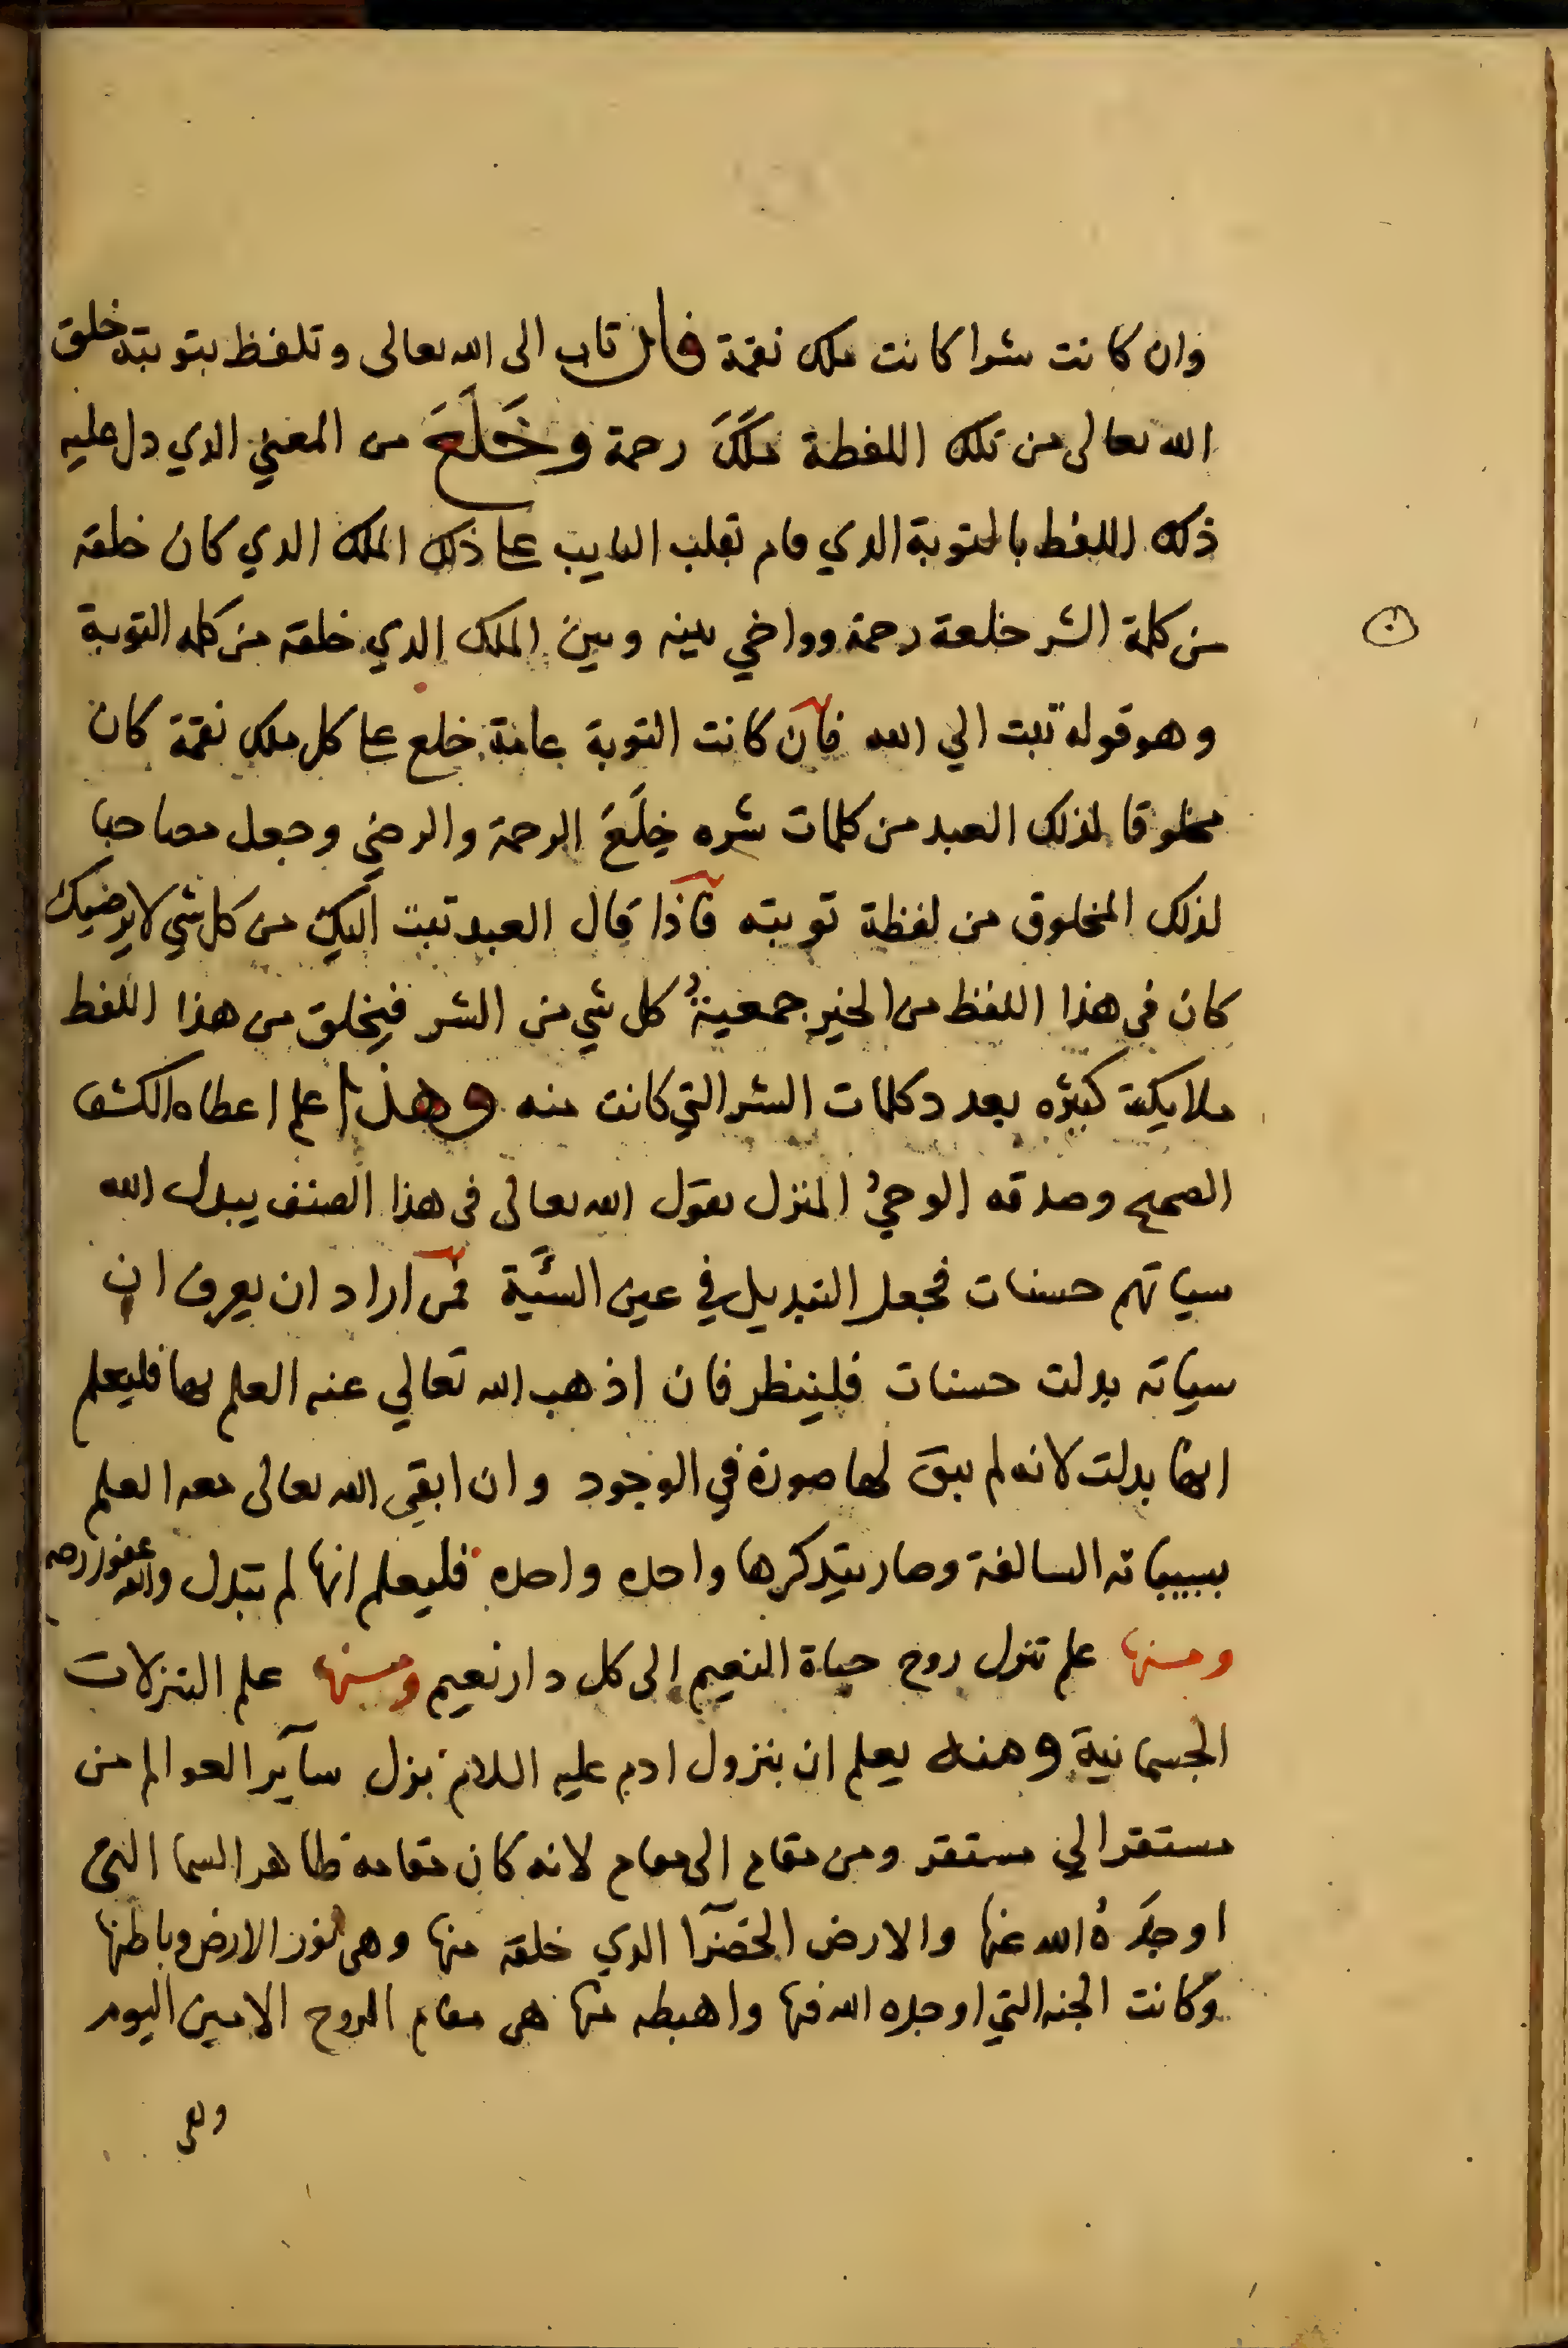 وان كانت شرا كانت ملك نقمة فان تاب الى الله تعالى وتلفظ بتوبته خلق
الله تعالى من تلك اللفظة مَلَكَ رحمة وخَلَعَ من المعني الذي دل عليه
ذلك اللفظ بالتوبة الذي قام بقلب التايب على ذلك الملك الذي كان خلقه
من كلمة الشر خلعة رحمة وواخي بينه وبين الملك الذي خلقه من كلمه التوبة
وهو قوله تبت الي الله فان كانت التوبة عامة خلع على كل ملك نقمة كان
مخلوقا لذلك العبد من كلمات شره خِلَعَ الرحمة والرضي وجعل مصاحبا
لذلك المخلوق من لفظة توبته فاذا قال العبد تبت اليك من كل شي لا يرضيك
كان في هذا اللفظ من الخير جمعيةُ كل شي من الشر فيخلق من هذا اللفظ
ملايكة كثيره بعدد كلمات الشر التي كانت منه وهذا علم اعطاه الكشف
الصحيح وصدقه الوحيُ المنزل بقول الله تعالى في هذا الصنف يبدل الله
سياتهم حسنات فجعل التبديل في عين السَّية فمن اراد ان يعرف ان
سياته بدلت حسنات فلينظر فان اذهب الله تعالي عنه العلم بها فليعلم
انها بدلت لانه لم يبق لها صورة في الوجود وان ابقي الله تعالى معه العلم
بسيياته السالفة وصار يتذكرها واحده واحده فليعلم انها لم تبدل والله غفور رحيم
ومنها علم تنزل روح حياة النعيم الى كل دار نعيم ومنها علم التنزلات
الجسمانية ومنه يعلم ان بنزول ادم عليه السلام نزل سآير العوالم من
مستقر الي مستقر ومن مقام الى مقام لانه كان مقامه ظاهر السما التي
اوجدَهُ الله عنها والارض الخضرآ الذي خلقه منها وهى نور الارض وباطنها
وكانت الجنه التي اوجده الله فيها واهبطه منها هى مقام الروح الامين اليوم
وهى